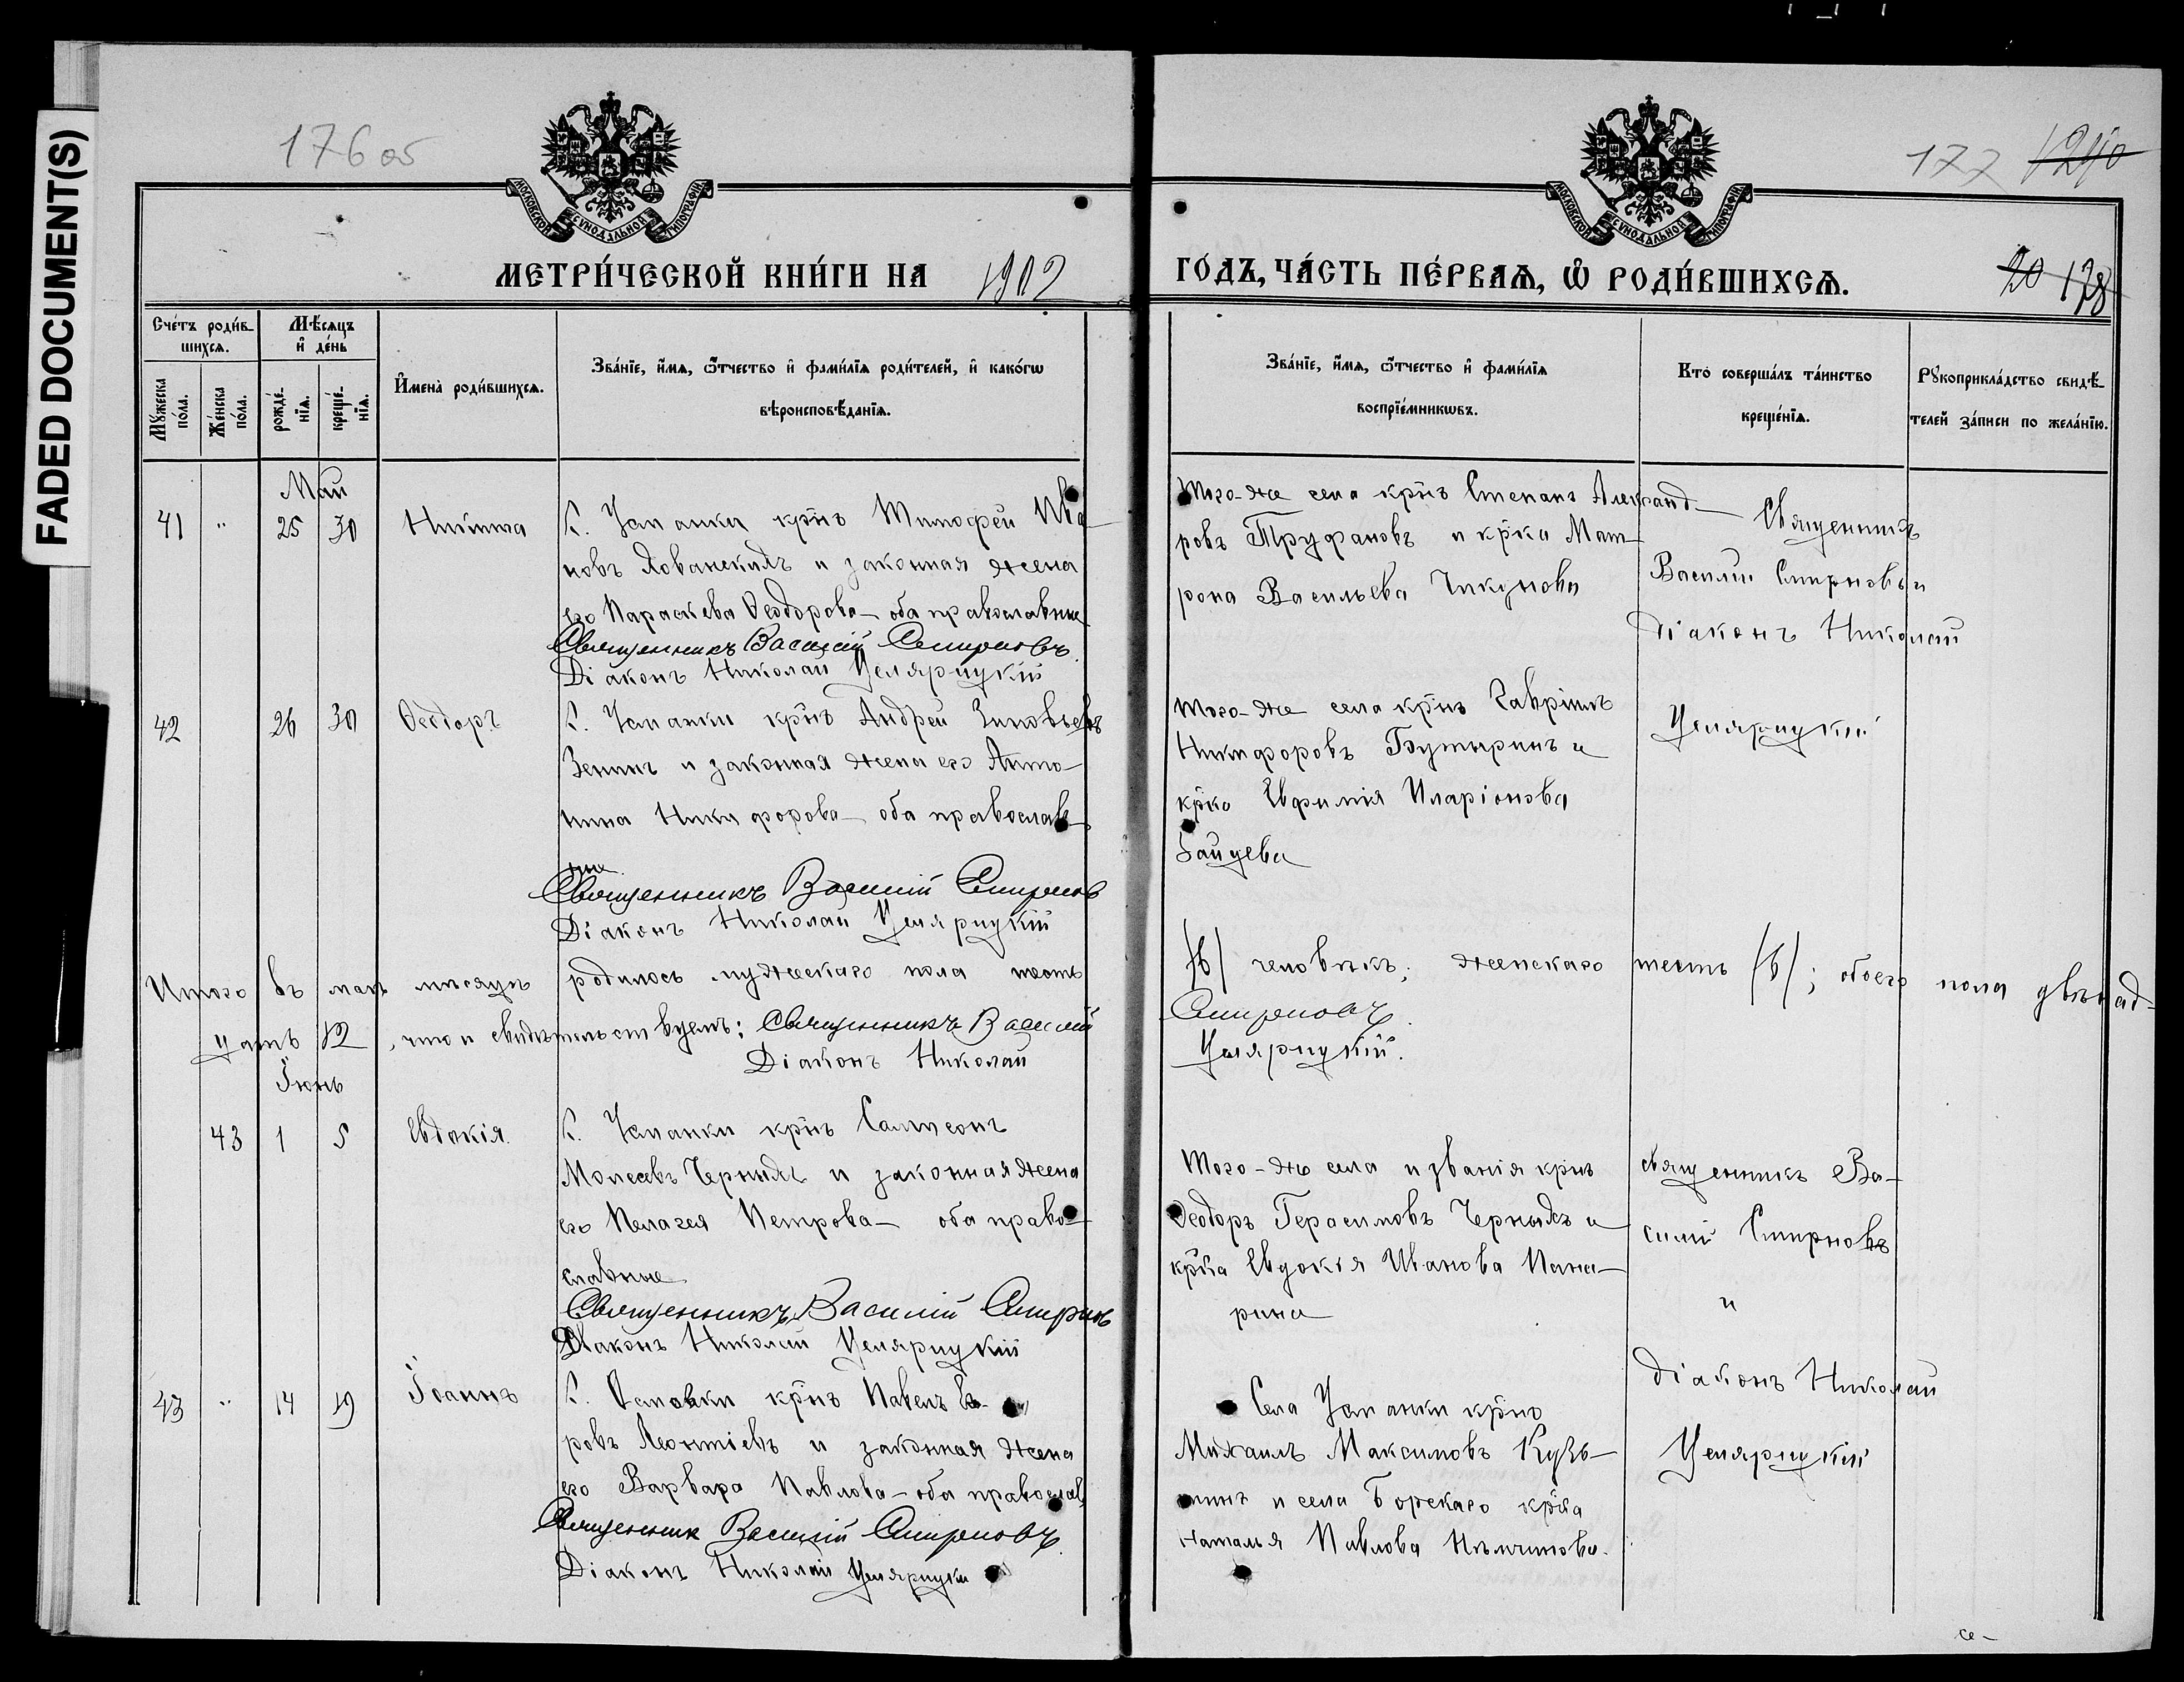 FADED DOCUMENT(S)
176 об
177 1240
МОСКОВСКОЙ СУНОДАЛЬНОЙ ТИПОГРАФІИ
МОСКОВСКОЙ СУНОДАЛЬНОЙ ТИПОГРАФІИ
МЕТРИ́ЧЕСКОЙ КНИ́ГИ НА 1902
ГО́ДЪ, ЧА́СТЬ ПЕ́РВАѦ, Ѡ҆ РОДИ́ВШИХСѦ.
20 178
Сче́тъ роди́в-
шихсѧ.
Мꙋ́жеска по́ла.
Же́нска по́ла.
Мѣ́сѧцъ
и҆ де́нь
рожде́-
нїѧ.
креще́-
нїѧ.
И҆мена̀ роди́вшихсѧ.
Зва́нїе, и҆́мѧ, ѻ҆́тчество и҆ фами́лїѧ роди́телей, и҆ како́гѡ
вѣроисповѣ́данїѧ.
Зва́нїе, и҆́мѧ, ѻ҆́тчество и҆ фами́лїѧ
воспрїе́мникѡвъ.
Кто̀ соверша́лъ та́инство
креще́нїѧ.
Рꙋкоприкла́дство свидѣ́-
телей за́писи по жела́нїю.
Май
41 " 25 30 Никита
С. Усманки крнъ Тимофей Ива-
новъ Хованскихъ и законная жена
его Параскева Ѳеодорова — оба православные
Священникъ Василій Смирновъ.
Діаконъ Николай Целярицкій
Того-же села крнъ Степанъ Александ-
ровъ Труфановъ и крка Мат-
рона Васильева Чикунова
Священникъ
Василій Смирновъ и
Діаконъ Николай
Целярицкій
42 26 30 Ѳеодоръ
С. Усманки крнъ Андрей Зиновьевъ
Зенинъ и законная жена его Анто-
нина Никифорова — оба православ-
ные
Священникъ Василій Смирнов
Діаконъ Николай Целярицкій
Того-же села крнъ Гавріилъ
Никифоровъ Бутыринъ и
крка Евфимія Иларіонова
Зайцева
Итого въ маѣ мѣсяцѣ родилось мужескаго пола шесть (6) человѣкъ; женскаго шесть (6); обоего пола двѣнад-
цать 12, что и свидѣтельствуемъ: Священникъ Василій Смирновъ.
Діаконъ Николай Целярицкій.
Іюнь
43 1 5 Евдокія.
С. Усманки крнъ Сампсонъ
Моисеевъ Черныхъ и законная жена
его Пелагея Петрова — оба право-
славные
Священникъ Василій Смирнов
Діаконъ Николай Целярицкій
Того-же села и званія крнъ
Ѳеодоръ Герасимовъ Черныхъ и
крка Евдокія Иванова Пана-
рина
священникъ Ва-
силій Смирновъ
и
Діаконъ Николай
Целярицкій
43 " 14 19 Іоаннъ
С. Усманки крнъ Павелъ
ровъ Леонтіевъ и законная жена
его Варвара Павлова — оба православ.
Священник Василій Смирновъ.
Діаконъ Николай Целярицкій
Села Усманки крнъ
Михаилъ Максимовъ Кузь-
минъ и села Борскаго крка
Наталья Павлова
се-